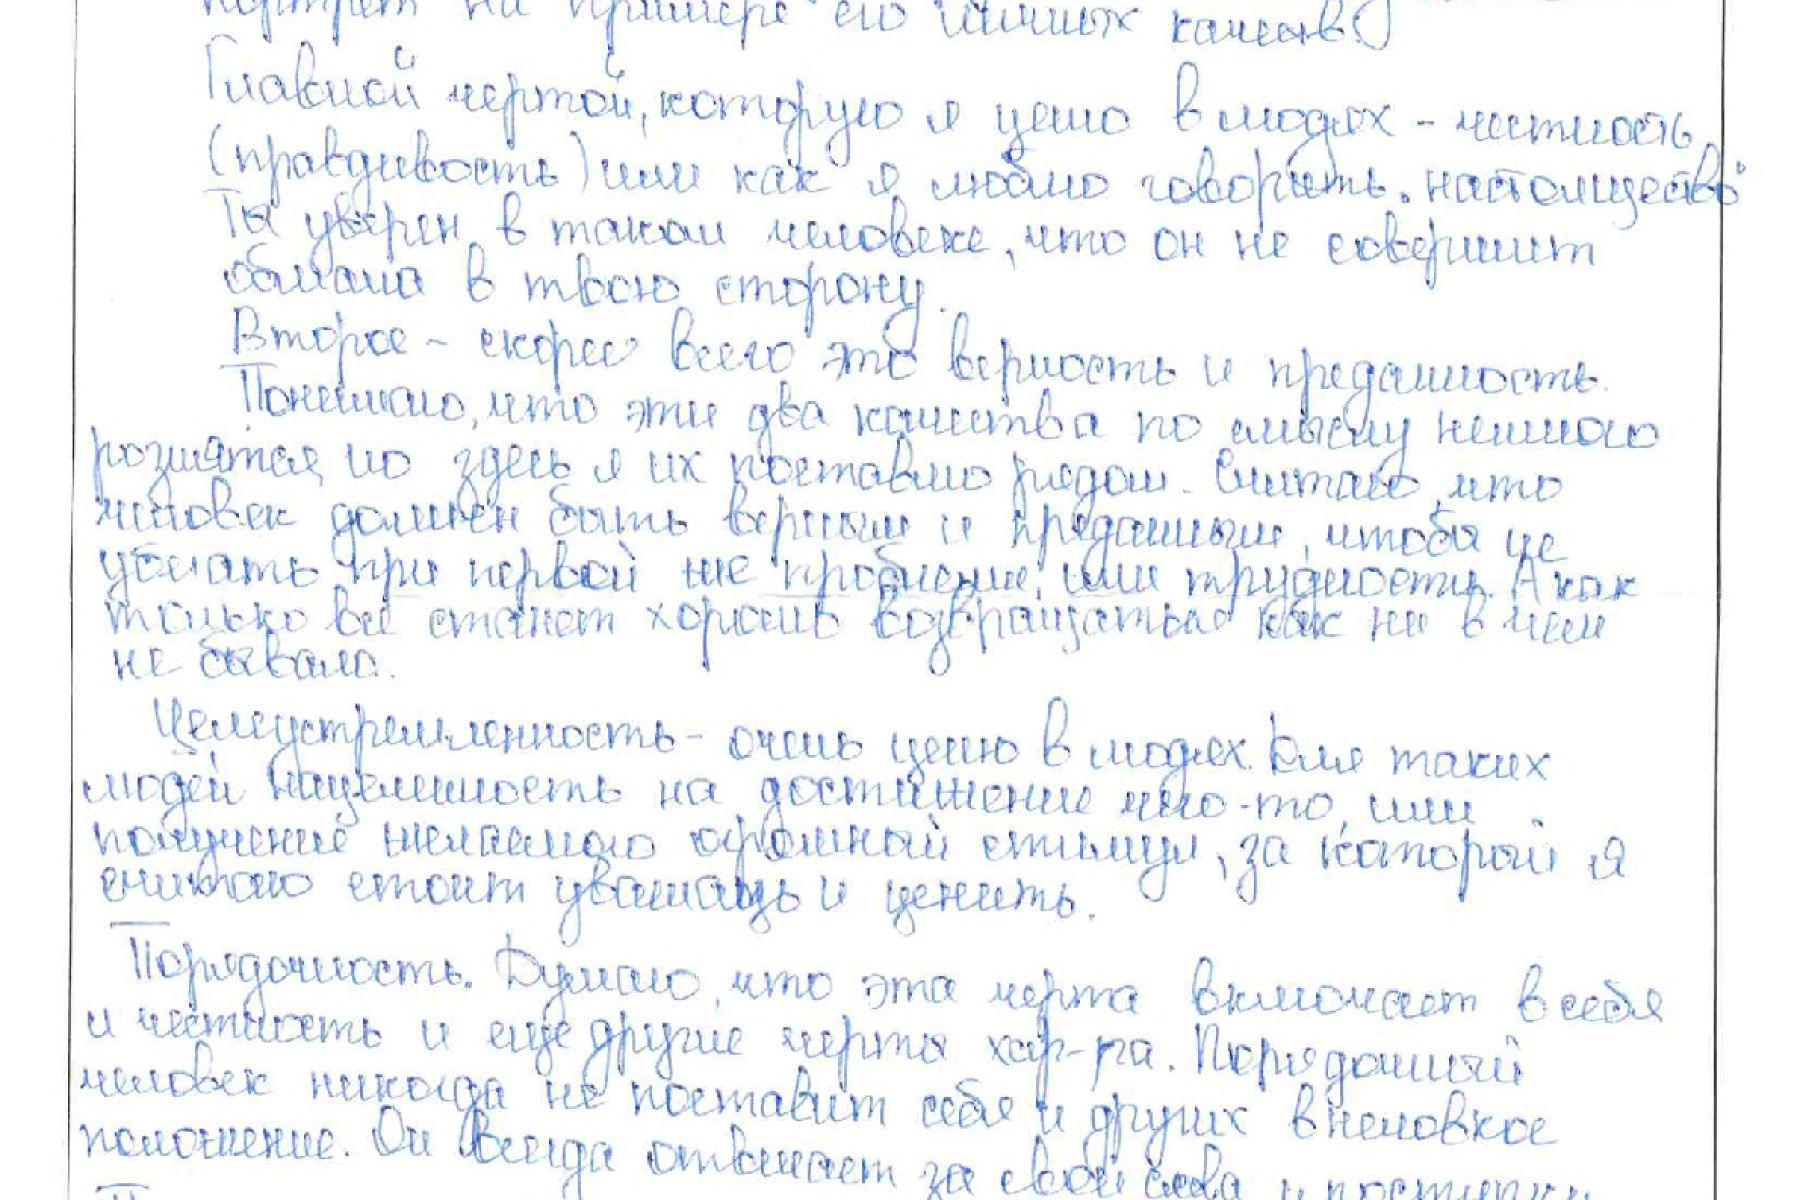 портрет на примере его личных качеств.
Главной чертой, которую я ценю в людях - честность
(правдивость) или как я люблю говорить "настоящество"
Ты уверен в таком человеке, что он не совершит
обмана в твою сторону.
Второе - скорее всего это верность и преданность.
Понимаю, что эти два качества по смыслу немного
рознятся, но здесь я их поставлю рядом. Считаю, что
человек должен быть верным и преданным, чтобы не
убегать при первой же проблеме, или трудности. А как
только все станет хорошо возвращаться как ни в чем
не бывало.
Целеустремленность - очень ценю в людях. Для таких
людей нацеленность на достижение чего-то, или
получение желаемого огромный стимул, за который я
считаю стоит уважать и ценить.
Порядочность. Думаю, что эта черта включает в себя
и честность и еще другие черты хар-ра. Порядочный
человек никогда не поставит себя и других в неловкое
положение. Он всегда отвечает за свои слова и поступки.